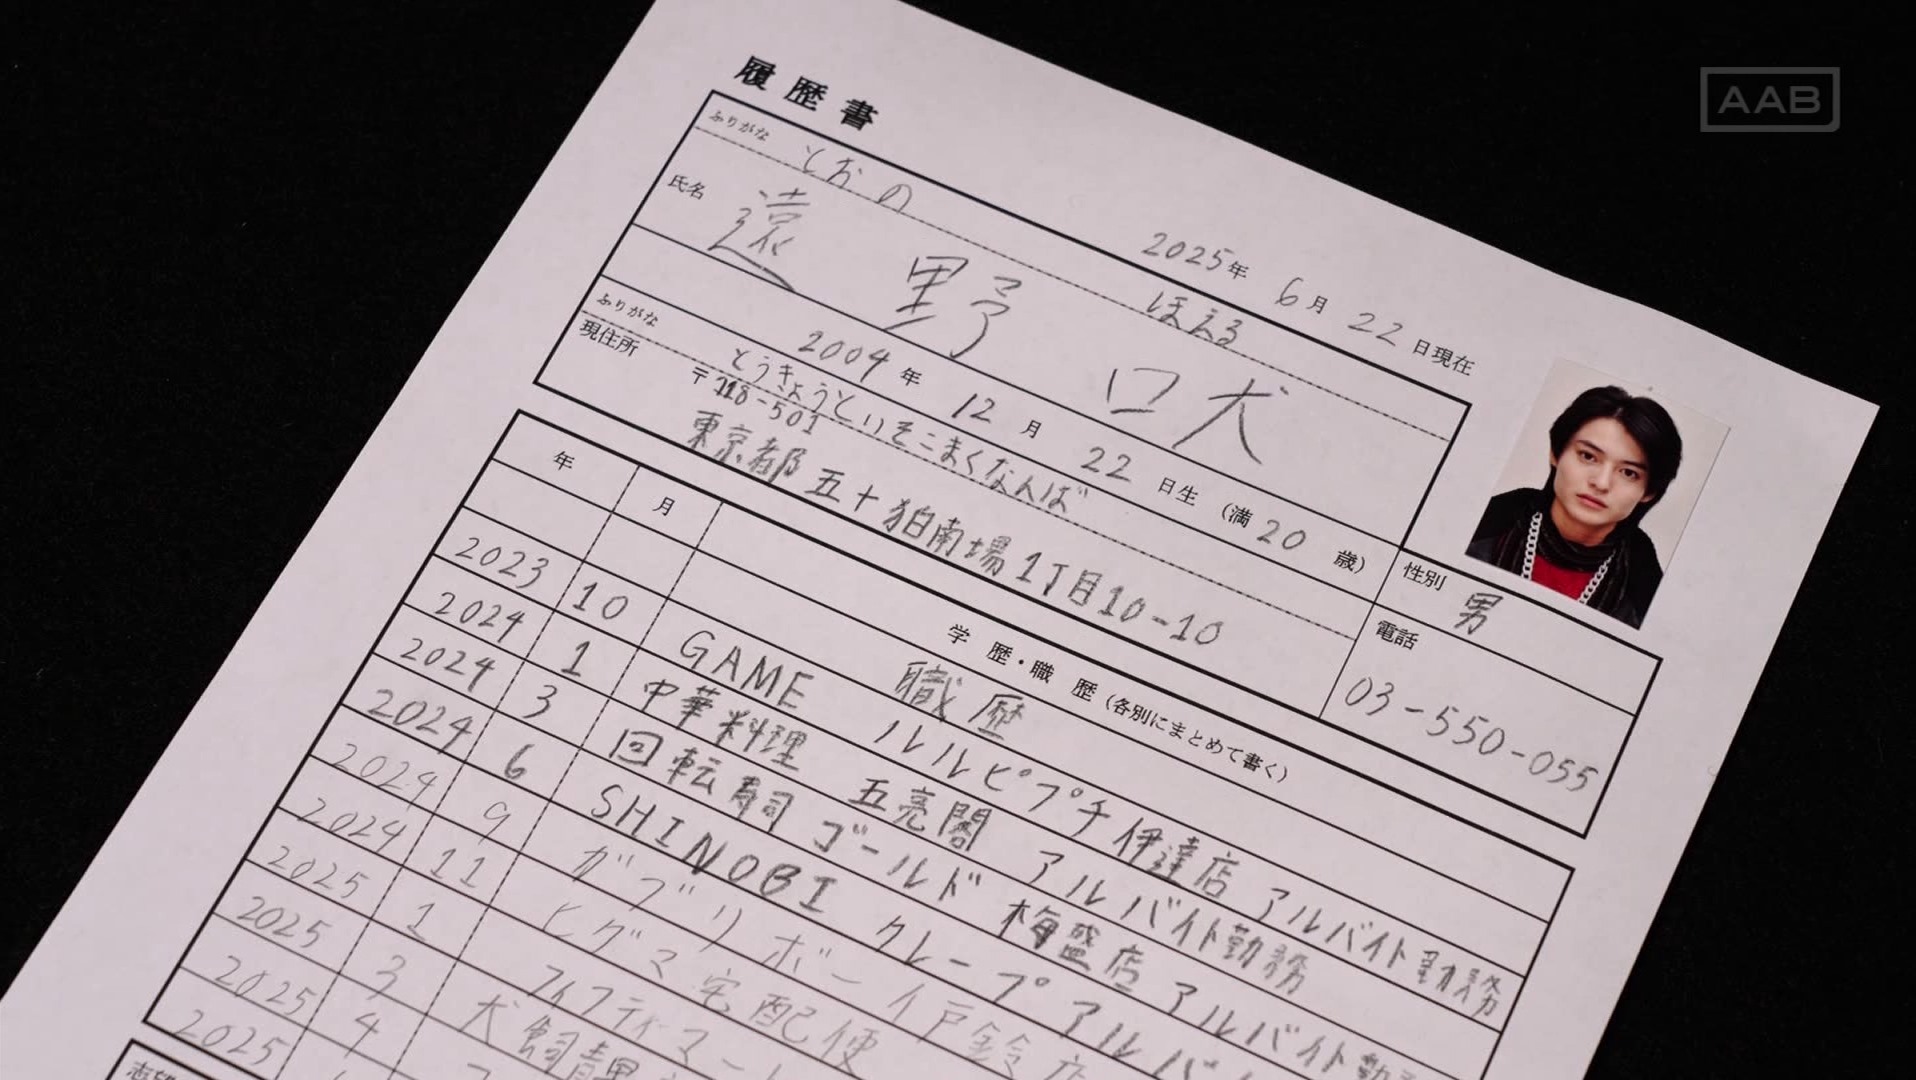 AAB
履歴書
2025年 6月 22日現在
ふりがな とおの ほえる
氏名 遠野 吠
2004年 12月 22日生 (満 20 歳)
性別 男
ふりがな とうきょうといそこまくなんば
現住所 〒118-501
東京都五十狛南場1丁目10-10
電話 03-550-055
年 月 学歴・職歴(各別にまとめて書く)
職歴
2023 10 GAME ルルピプチ 伊達店 アルバイト勤務
2024 1 中華料理 五亮閣 アルバイト勤務
2024 3 回転寿司 ゴールド 梅盛店 アルバイト勤
2024 6 SHINOBI クレープ アルバイ
2024 9 ガブリボーイ 戸鈴店
2024 11 ヒグマ宅配便
2025 1 フィフティマート
2025 3 犬飼
2025 4
2025
志望